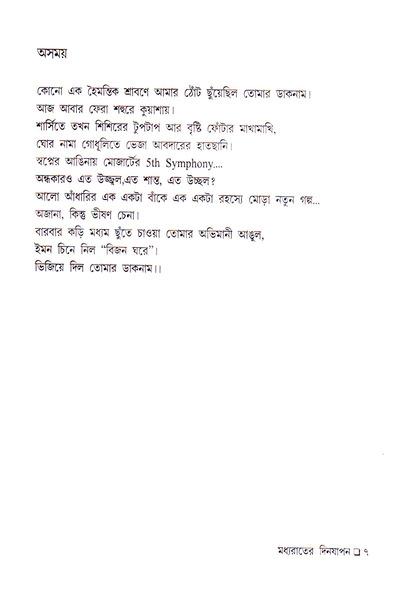 অসময়
কোনো এক হৈমন্তিক শ্রাবণে আমার ঠোঁট ছুঁয়েছিল তোমার ডাকনাম।
আজ আবার ফেরা শহুরে কুয়াশায়।
শার্সিতে তখন শিশিরের টুপটাপ আর বৃষ্টি ফোঁটার মাখামাখি,
ঘোর নামা গোধূলিতে ভেজা আবদারের হাতছানি।
স্বপ্নের আঙিনায় মোজার্টের 5th Symphony....
অন্ধকারও এত উজ্জ্বল,এত শান্ত, এত উচ্ছল?
আলো আঁধারির এক একটা বাঁকে এক একটা রহস্যে মোড়া নতুন গল্প...
অজানা, কিন্তু ভীষণ চেনা।
বারবার কড়ি মধ্যম ছুঁতে চাওয়া তোমার অভিমানী আঙুল,
ইমন চিনে নিল “বিজন ঘরে”।
ভিজিয়ে দিল তোমার ডাকনাম।।
মধ্যরাতের দিনযাপন ❏ ৭